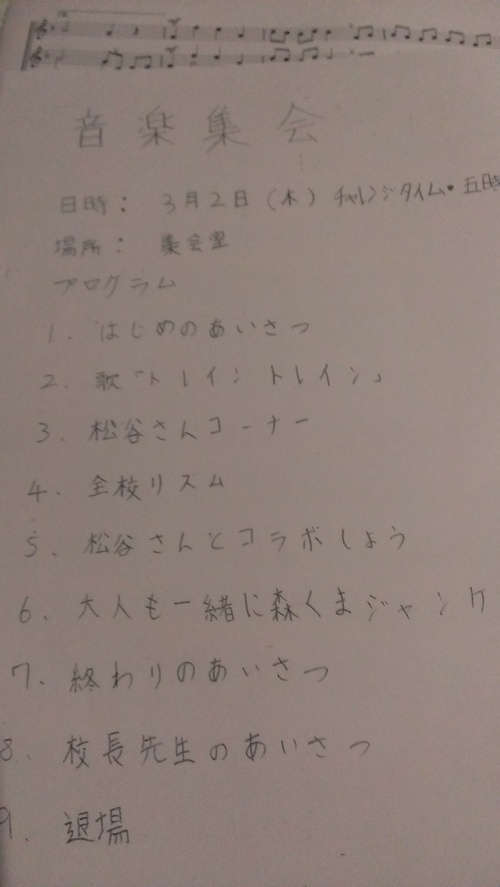 音楽集会
日時： 3月2日（木）チャレンジタイム・五時
場所： 集会室
プログラム
1. はじめのあいさつ
2. 歌「トレイントレイン」
3. 松谷さんコーナー
4. 全校リズム
5. 松谷さんとコラボしよう
6. 大人も一緒に森くまジャンケ
7. 終わりのあいさつ
8. 校長先生のあいさつ
9. 退場